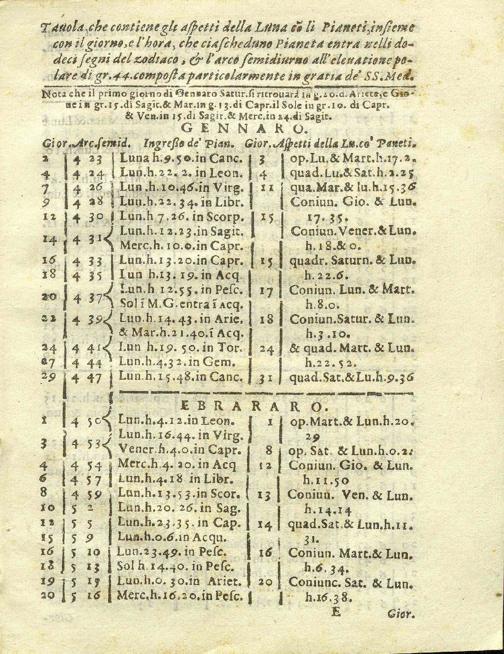 Tauola, che contiene gli aspetti della Luna cõ li Pianeti, insieme
con il giorno, e l'hora, che ciascheduno Pianeta entra nelli do-
deci segni del zodiaco, & l'arco semidiurno all'eleuatione po-
lare di gr. 44. composta particolarmente in gratia de' SS. Med.
Nota che il primo giorno di Gennaro Satur. si ritrouarà in g. 20. d. Ariete, e Gio-
ue in gr. 15. di Sagit. & Mar. in g. 13. di Capr. il Sole in gr. 10. di Capr.
& Ven. in 15. di Sagit. & Merc. in 24. di Sagit.
GENNARO.
Gior. Arc. semid. Ingresso de' Pian. Gior. Aspetti della Lu. co' Paneti.
2 4 23 Luna h. 9. 50. in Canc. 3 op. Lu. & Mart. h. 17. 2.
4 4 24 Lun. h. 22. 2. in Leon. 4 quad. Lu. & Sat. h. 2. 25
7 4 26 Lun. h. 10. 46. in Virg. 11 qua. Mar. & lu. h. 15. 36
9 4 28 Lun. h. 22. 34. in Libr. Coniun. Gio. & Lun.
12 4 30 Lun. h 7. 26. in Scorp. 15 17. 35.
14 4 31 Lun. h. 12. 23. in Sagit. Coniun. Vener. & Lun.
Merc. h. 10. 0. in Capr. h. 18. & 0.
16 4 33 Lun. h. 13. 20. in Capr. 15 quadr. Saturn. & Lun.
18 4 35 Lun h. 13. 19. in Acq. h. 22. 6.
20 4 37 Lun h. 12. 55. in Pesc. 17 Coniun. Lun. & Mart.
Sol ĩ M. G. entra ĩ Acq. h. 8. 0.
22 4 39 Lun. h. 14. 43. in Arie. 18 Coniun. Satur. & Lun.
& Mar. h. 21. 40. ĩ Acq. h. 3. 10.
24 4 41 Lun h. 19. 50. in Tor. 24 & quad. Mart. & Lun.
27 4 44 Lun. h. 4. 32. in Gem. h. 22. 52.
29 4 47 Lun. h. 15. 48. in Canc. 31 quad. Sat. & Lu. h. 9. 36
EBRARARO.
1 4 50 Lun. h. 4. 12. in Leon. 1 op. Mart. & Lun. h. 20.
3 4 53 Lun. h. 16. 44. in Virg. 29
Vener. h. 4. 0. in Capr. 8 op. Sat. & Lun. h. 0. 2.
4 4 54 Merc. h. 4. 20. in Acq 12 Coniun. Gio. & Lun.
6 4 57 Lun. h. 4. 18 in Libr. h. 11. 50
8 4 59 Lun. h. 13. 53. in Scor. 13 Coniun. Ven. & Lun.
10 5 2 Lun. h. 20. 26. in Sag. h. 14. 14
12 5 5 Lun. h. 23. 35. in Cap. 14 quad. Sat. & Lun. h. 11.
15 5 9 Lun. h. 0. 6. in Acqu. 31.
16 5 10 Lun. 23. 49. in Pesc. 16 Coniun. Mart. & Lun.
18 5 13 Sol h. 14. 40. in Pesc. h. 6. 34.
19 5 15 Lun. h. 0. 30. in Ariet. 20 Coniunc. Sat. & Lun.
20 5 16 Merc. h. 16. 20. in Pesc. h. 16. 38.
E Gior.